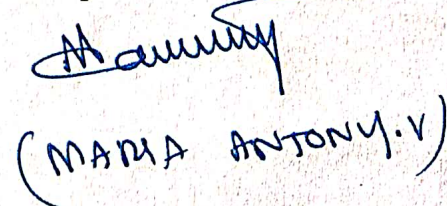 (MARIA ANTONY.V)